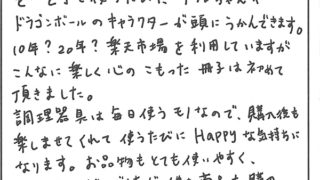 ドラゴンボールのキャラクターが頭にうかんできます。
10年？20年？楽天市場を利用していますが
こんなに楽しく心のこもった冊子は初めて
頂きました。
調理器具は毎日使うモノなので、購入後も
楽しませてくれて使うたびにHappyな気持ちに
なります。お品物もとても使いやすく、